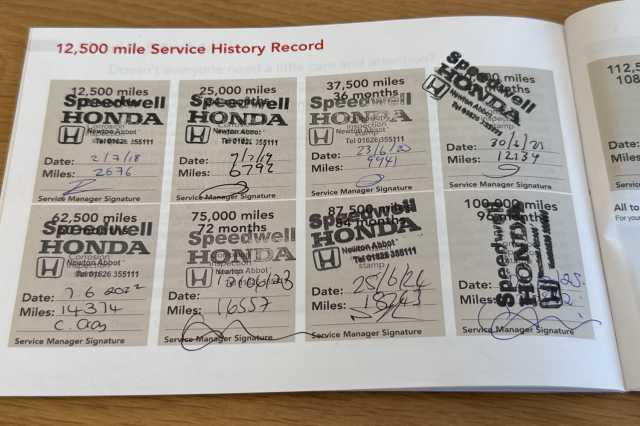 12,500 mile Service History Record
12,500 miles
Speedwell
HONDA
Newton Abbot
Tel 01626 355111
Date: 2/7/18
Miles: 2676
Service Manager Signature
25,000 miles
Speedwell
HONDA
Newton Abbot
Tel 01626 355111
Date:
Miles: 6792
Service Manager Signature
37,500 miles
36 months
Speedwell
HONDA
Newton Abbot
Tel 01626 355111
Date: 23/6/20
Miles: 9941
Service Manager Signature
miles
Speedwell
HONDA
Newton Abbot
Tel 01626 355111
Date: 30/6/21
Miles: 12134
Service Manager Signature
62,500 miles
Speedwell
HONDA
Newton Abbot
Tel 01626 355111
Date: 7.6 2022
Miles: 14374
Service Manager Signature
75,000 miles
72 months
Speedwell
HONDA
Newton Abbot
Tel 01626 355111
Date:
Miles: 16557
Service Manager Signature
87,500 miles
84 months
Speedwell
HONDA
Newton Abbot
Tel 01626 355111
stamp
Date: 25/6/24
Miles:
Service Manager Signature
100,000 miles
96 months
Speedwell
HONDA
Date:
Miles:
Service Manager Signature
112,5
108
All to
For your